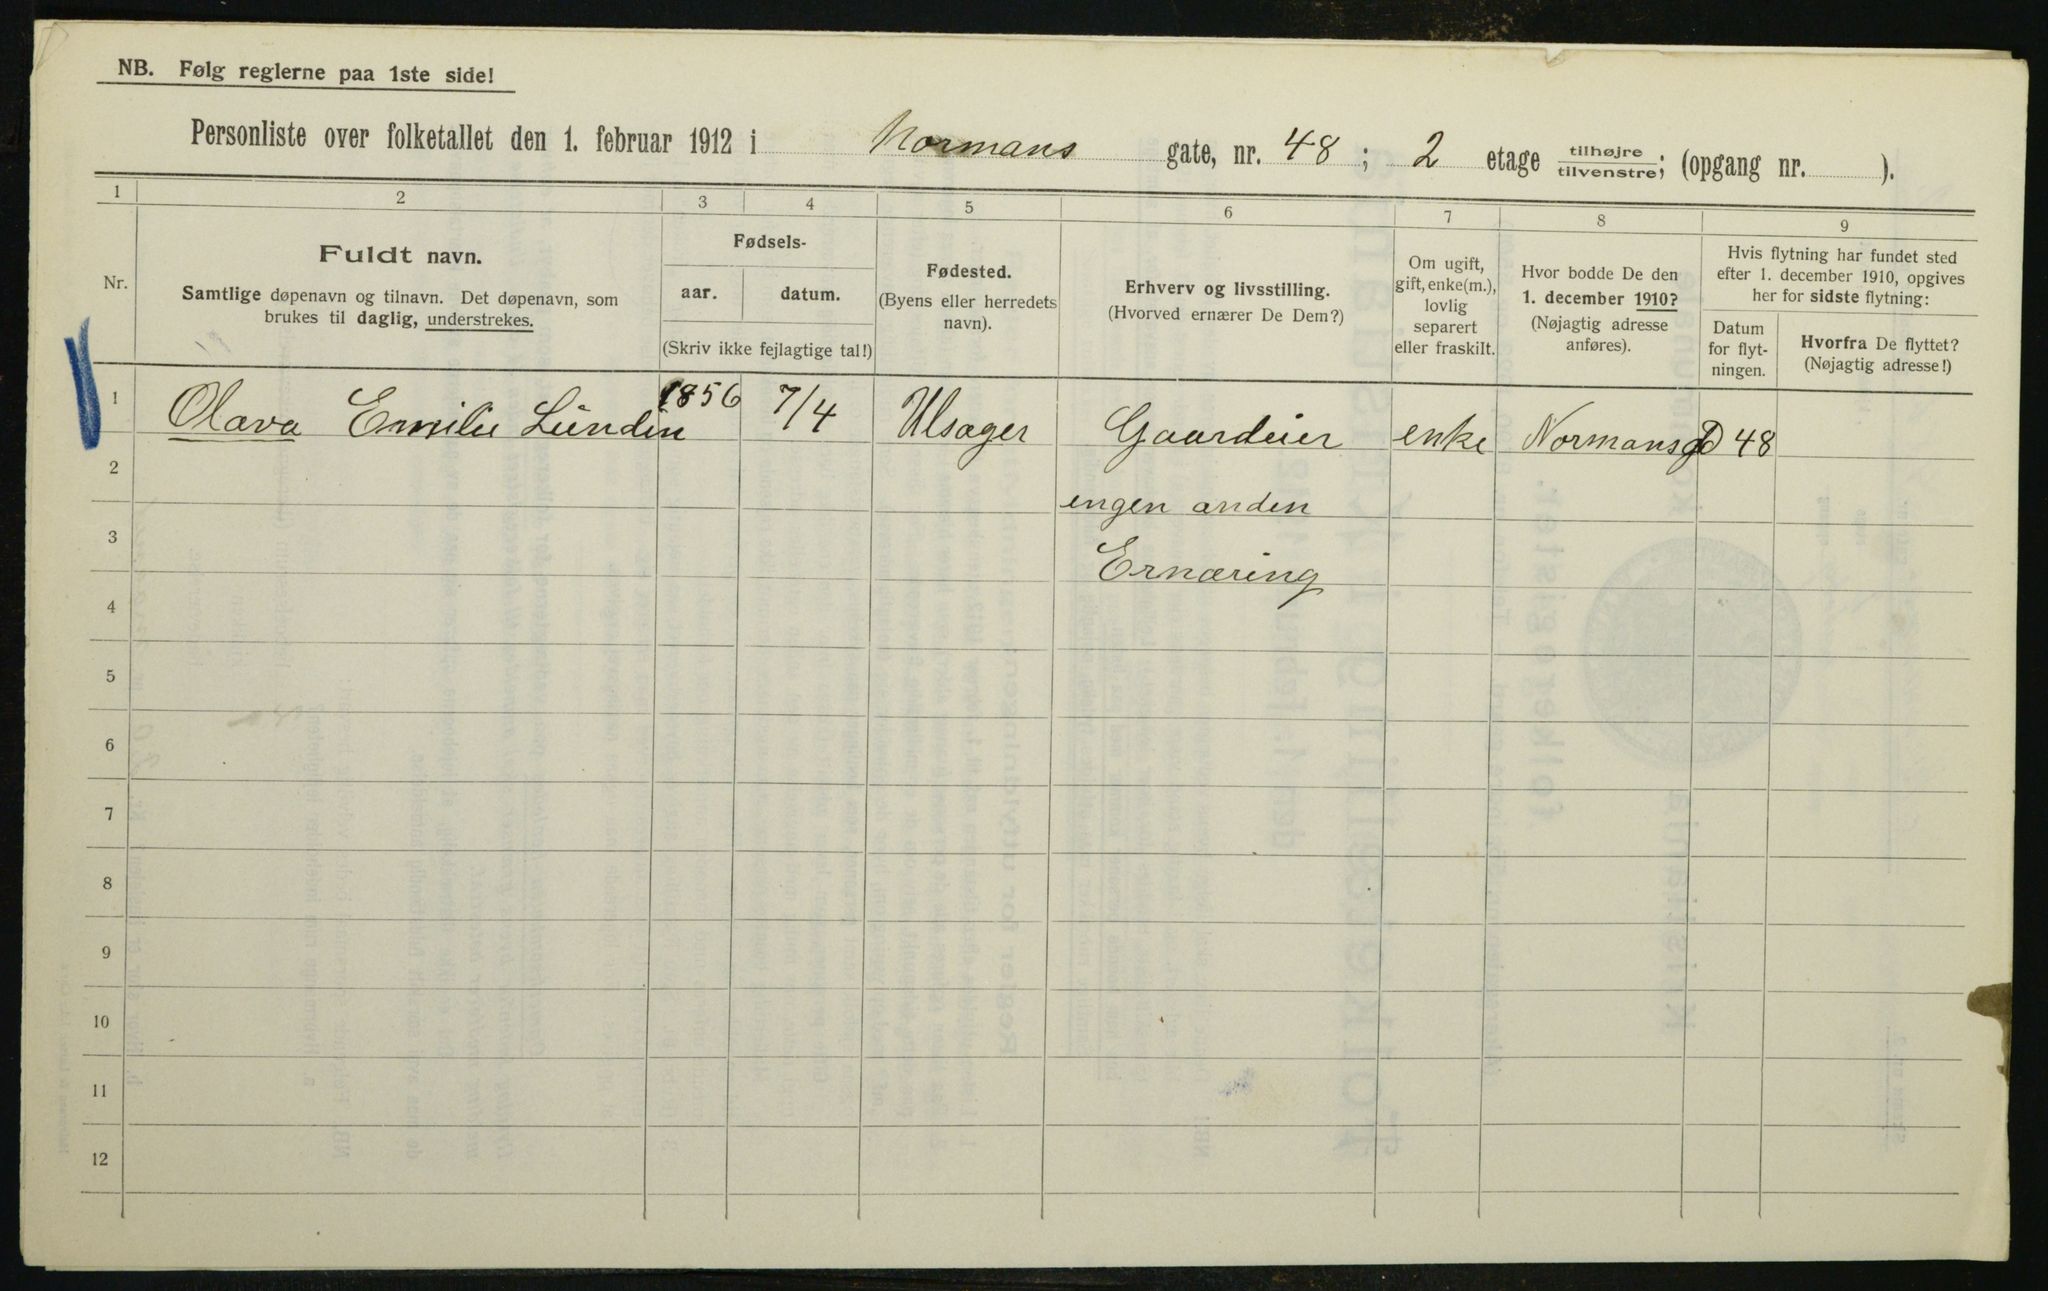 NB. Følg reglerne paa 1ste side!
Personliste over folketallet den 1. februar 1912 i Normans gate, nr. 48; 2 etage tilhøjre/tilvenstre; (opgang nr. ).
1 2 3 4 5 6 7 8 9
Nr.
Fuldt navn.
Samtlige døpenavn og tilnavn. Det døpenavn, som
brukes til daglig, understrekes.
Fødsels-
aar. datum.
(Skriv ikke fejlagtige tal!)
Fødested.
(Byens eller herredets
navn).
Erhverv og livsstilling.
(Hvorved ernærer De Dem?)
Om ugift,
gift, enke(m.),
lovlig
separert
eller fraskilt.
Hvor bodde De den
1. december 1910?
(Nøjagtig adresse
anføres).
Hvis flytning har fundet sted
efter 1. december 1910, opgives
her for sidste flytning:
Datum
for flyt-
ningen.
Hvorfra De flyttet?
(Nøjagtig adresse!)
1 Olava Emilie Lundin 1856 7/4 Ulsager Gaardeier enke Normansgd 48
2 engen anden
3 Ernæring
4
5
6
7
8
9
10
11
12